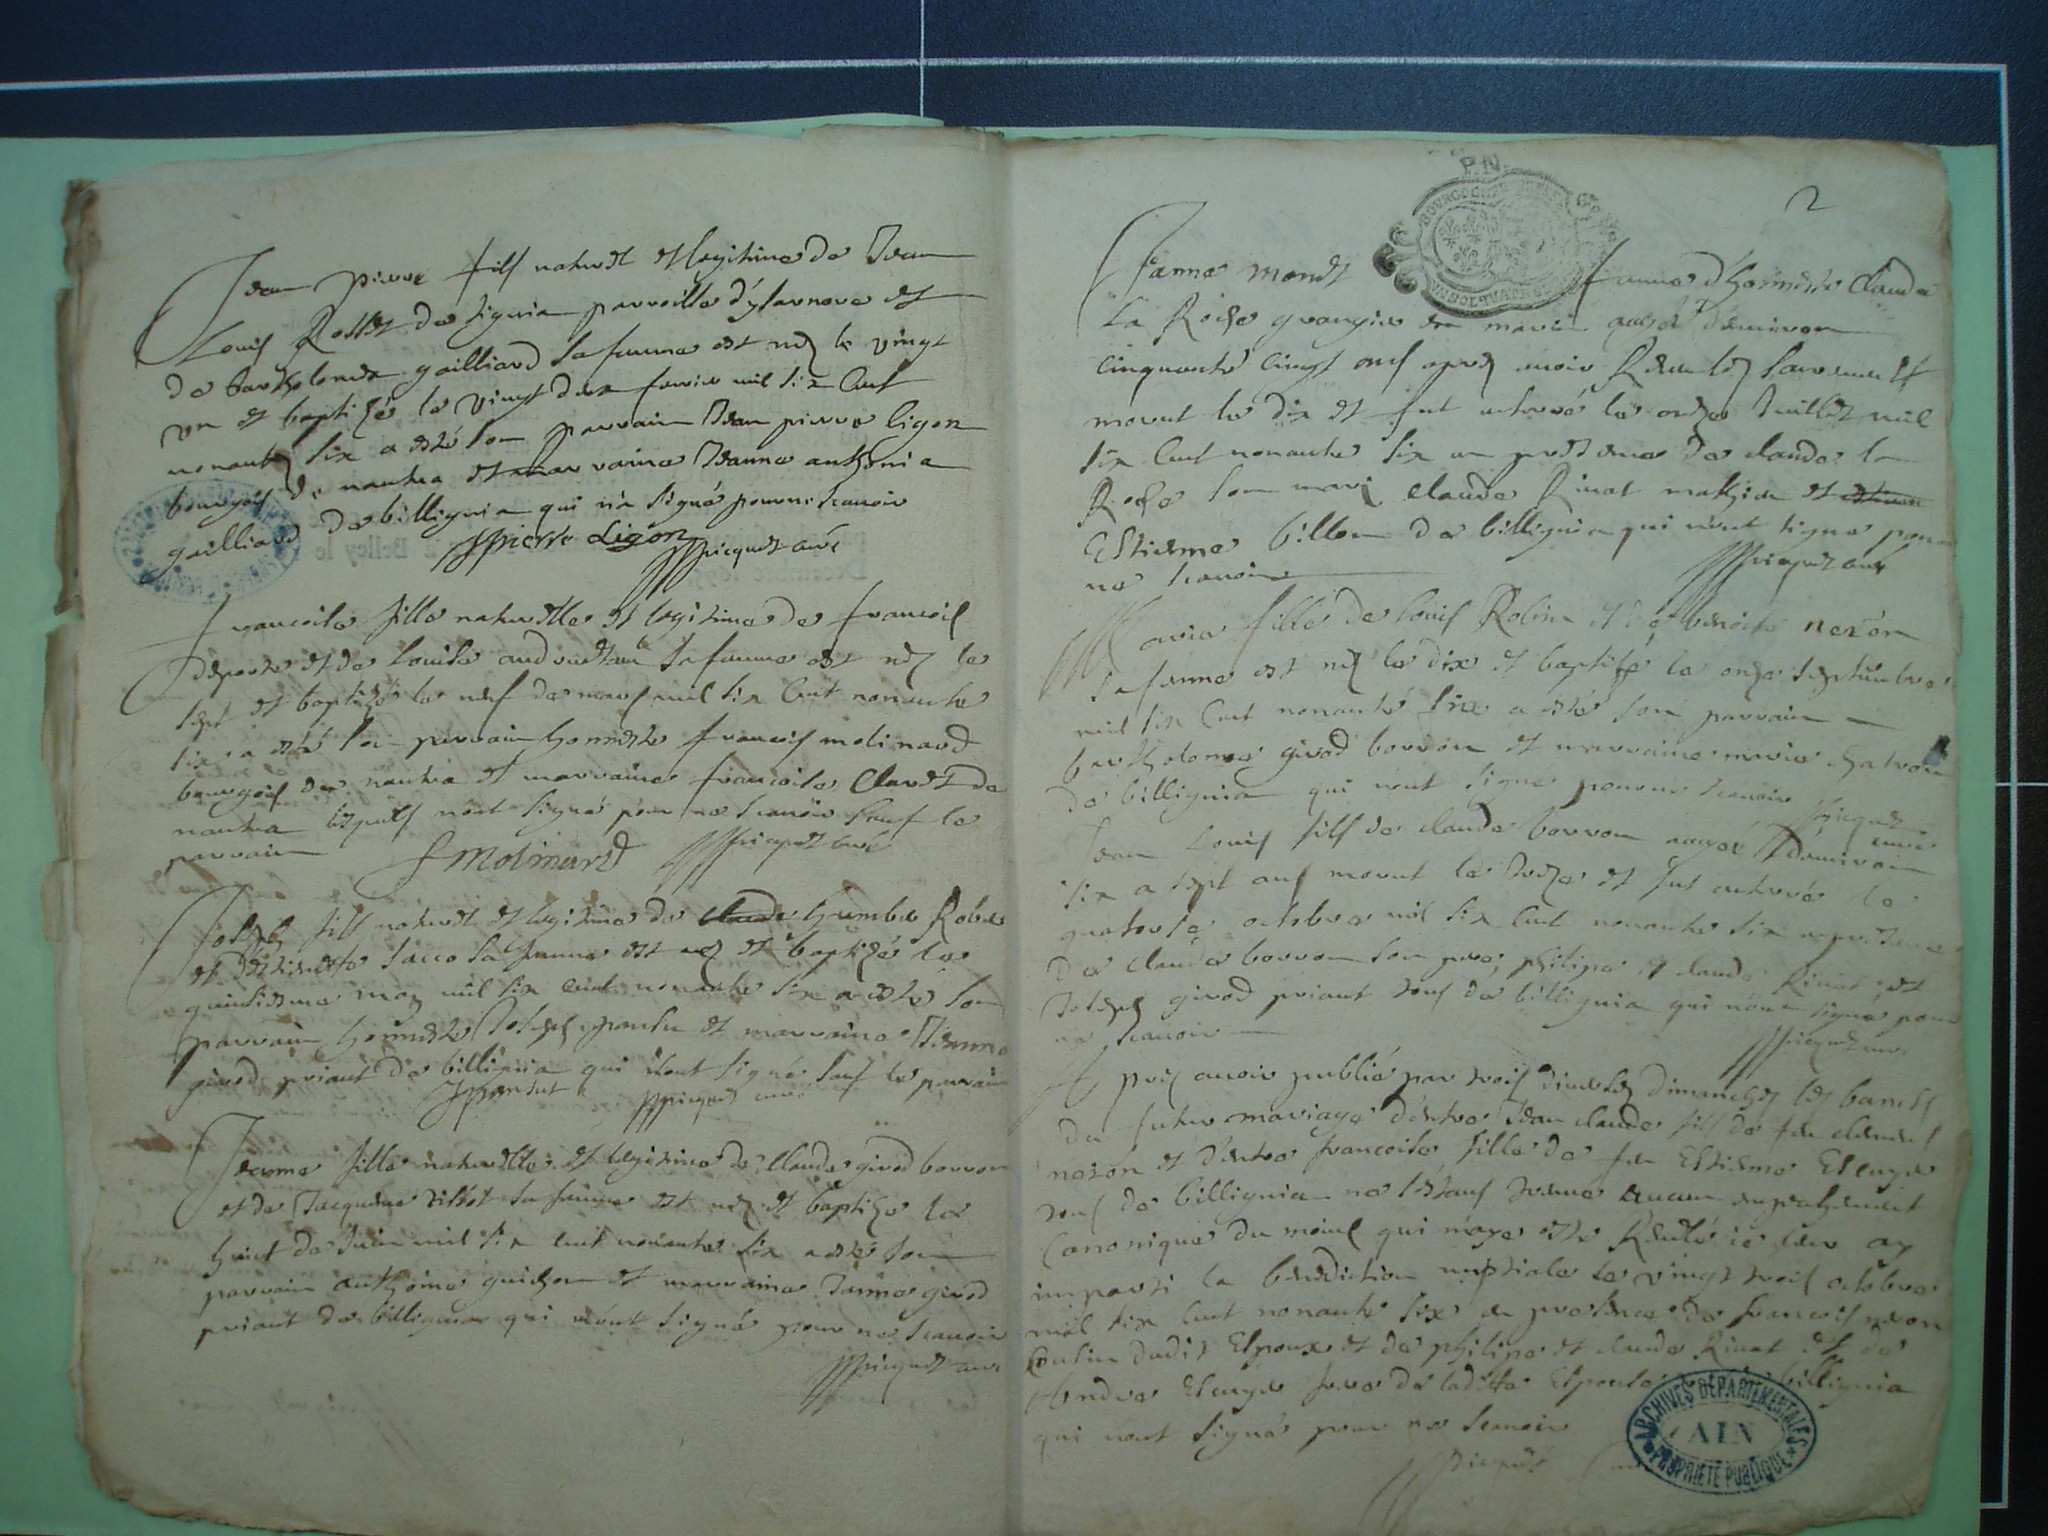 Jean pierre fils naturel et legitime de Jean
Louis Rosset de signia parroisse d'ysarnore et
de bartholomea gailliard sa femme est nez le vingt
un et baptizé le vingt deux fevrier mil six cent
nonante six a esté son parrain Jean pierre ligon
bourgois de nantua et marraine Jeanne anthonia
gailliard de billignia qui n'a signé pour ne scavoir
Pierre Ligon picquet curé
francoise fille naturelle et legitime de francois
deporte et de Louise sa femme est nez le
sept et baptizé le neuf de mars mil six cent nonante
six a esté son parrain honneste francois molinard
bourgois de nantua et marraine francoise Claret de
nantua lesquels n'ont signé pour ne scavoir sauf le
parrain
f Molinard picquet curé
Joseph fils naturel et legitime de claude humbe Robe
et sacco sa femme est nez et baptizé le
quinsiesme may mil six cent nonante six a esté son
parrain honneste Joseph pansu et marraine Jeanne
girod priant de billignia qui n'ont signé sauf le parrain
J pansut picquet curé
Jeanne fille naturelle et legitime de Claude girod borron
et de Jacquema tissot sa femme est nez et baptize le
huict de Juin mil six cent nonante six a esté son
parrain anthoine guichon et marraine Jeanne girod
priant de billignia qui n'ont signé pour ne scavoir
picquet curé
P. N.
2
Jeanne monet femme d'honneste Claude
La Roche grangier en marin agee d'environ
cinquante cinq ans apres avoir Receu les sacrements
morut le dix et fut enterré le onze Juillet mil
six cent nonante six en presence de claude la
Roche son mari claude Rivat et
Estienne billon de billignia qui n'ont signe pour
ne scavoir picquet curé
Maria fille de louis Robin et de benoite nezon
sa femme est nez le dix et baptisé le onze septembre
mil six cent nonante six a esté son parrain
bartholome girod borron et marraine marie
de billignia qui n'ont signe pour ne scavoir picquet
curé
Jean Louis fils de claude borron aagee d'environ
six a sept ans morut le treze et fut enterré le
quatorse octobre mil six cent nonante six en presence
de claude borron son pere, philipe et claude Rivat, et
Joseph girod priant tous de billignia qui n'ont signe pour
ne scavoir picquet curé
Apres avoir publié par trois divers dimanches les bancs
du futur mariage d'entre Jean claude fils de feu clement
nezon et d'entre francoise fille de feu Estienne Escuyer
tous de billignia ne s'estant treuve aucun empechement
Canonique du moins qui m'aye esté Revelé ie leur ay
imparti la benediction nuptiale le vingt trois octobre
mil six cent nonante six en presence de francois nezon
cousin dudit Espoux et de philipe et claude Rivat et de
Andre Escuyer frere de laditte Espouse billignia
qui n'ont signé pour ne scavoir
picquet curé
ARCHIVES DÉPARTEMENTALES
AIN
PROPRIÉTÉ PUBLIQUE